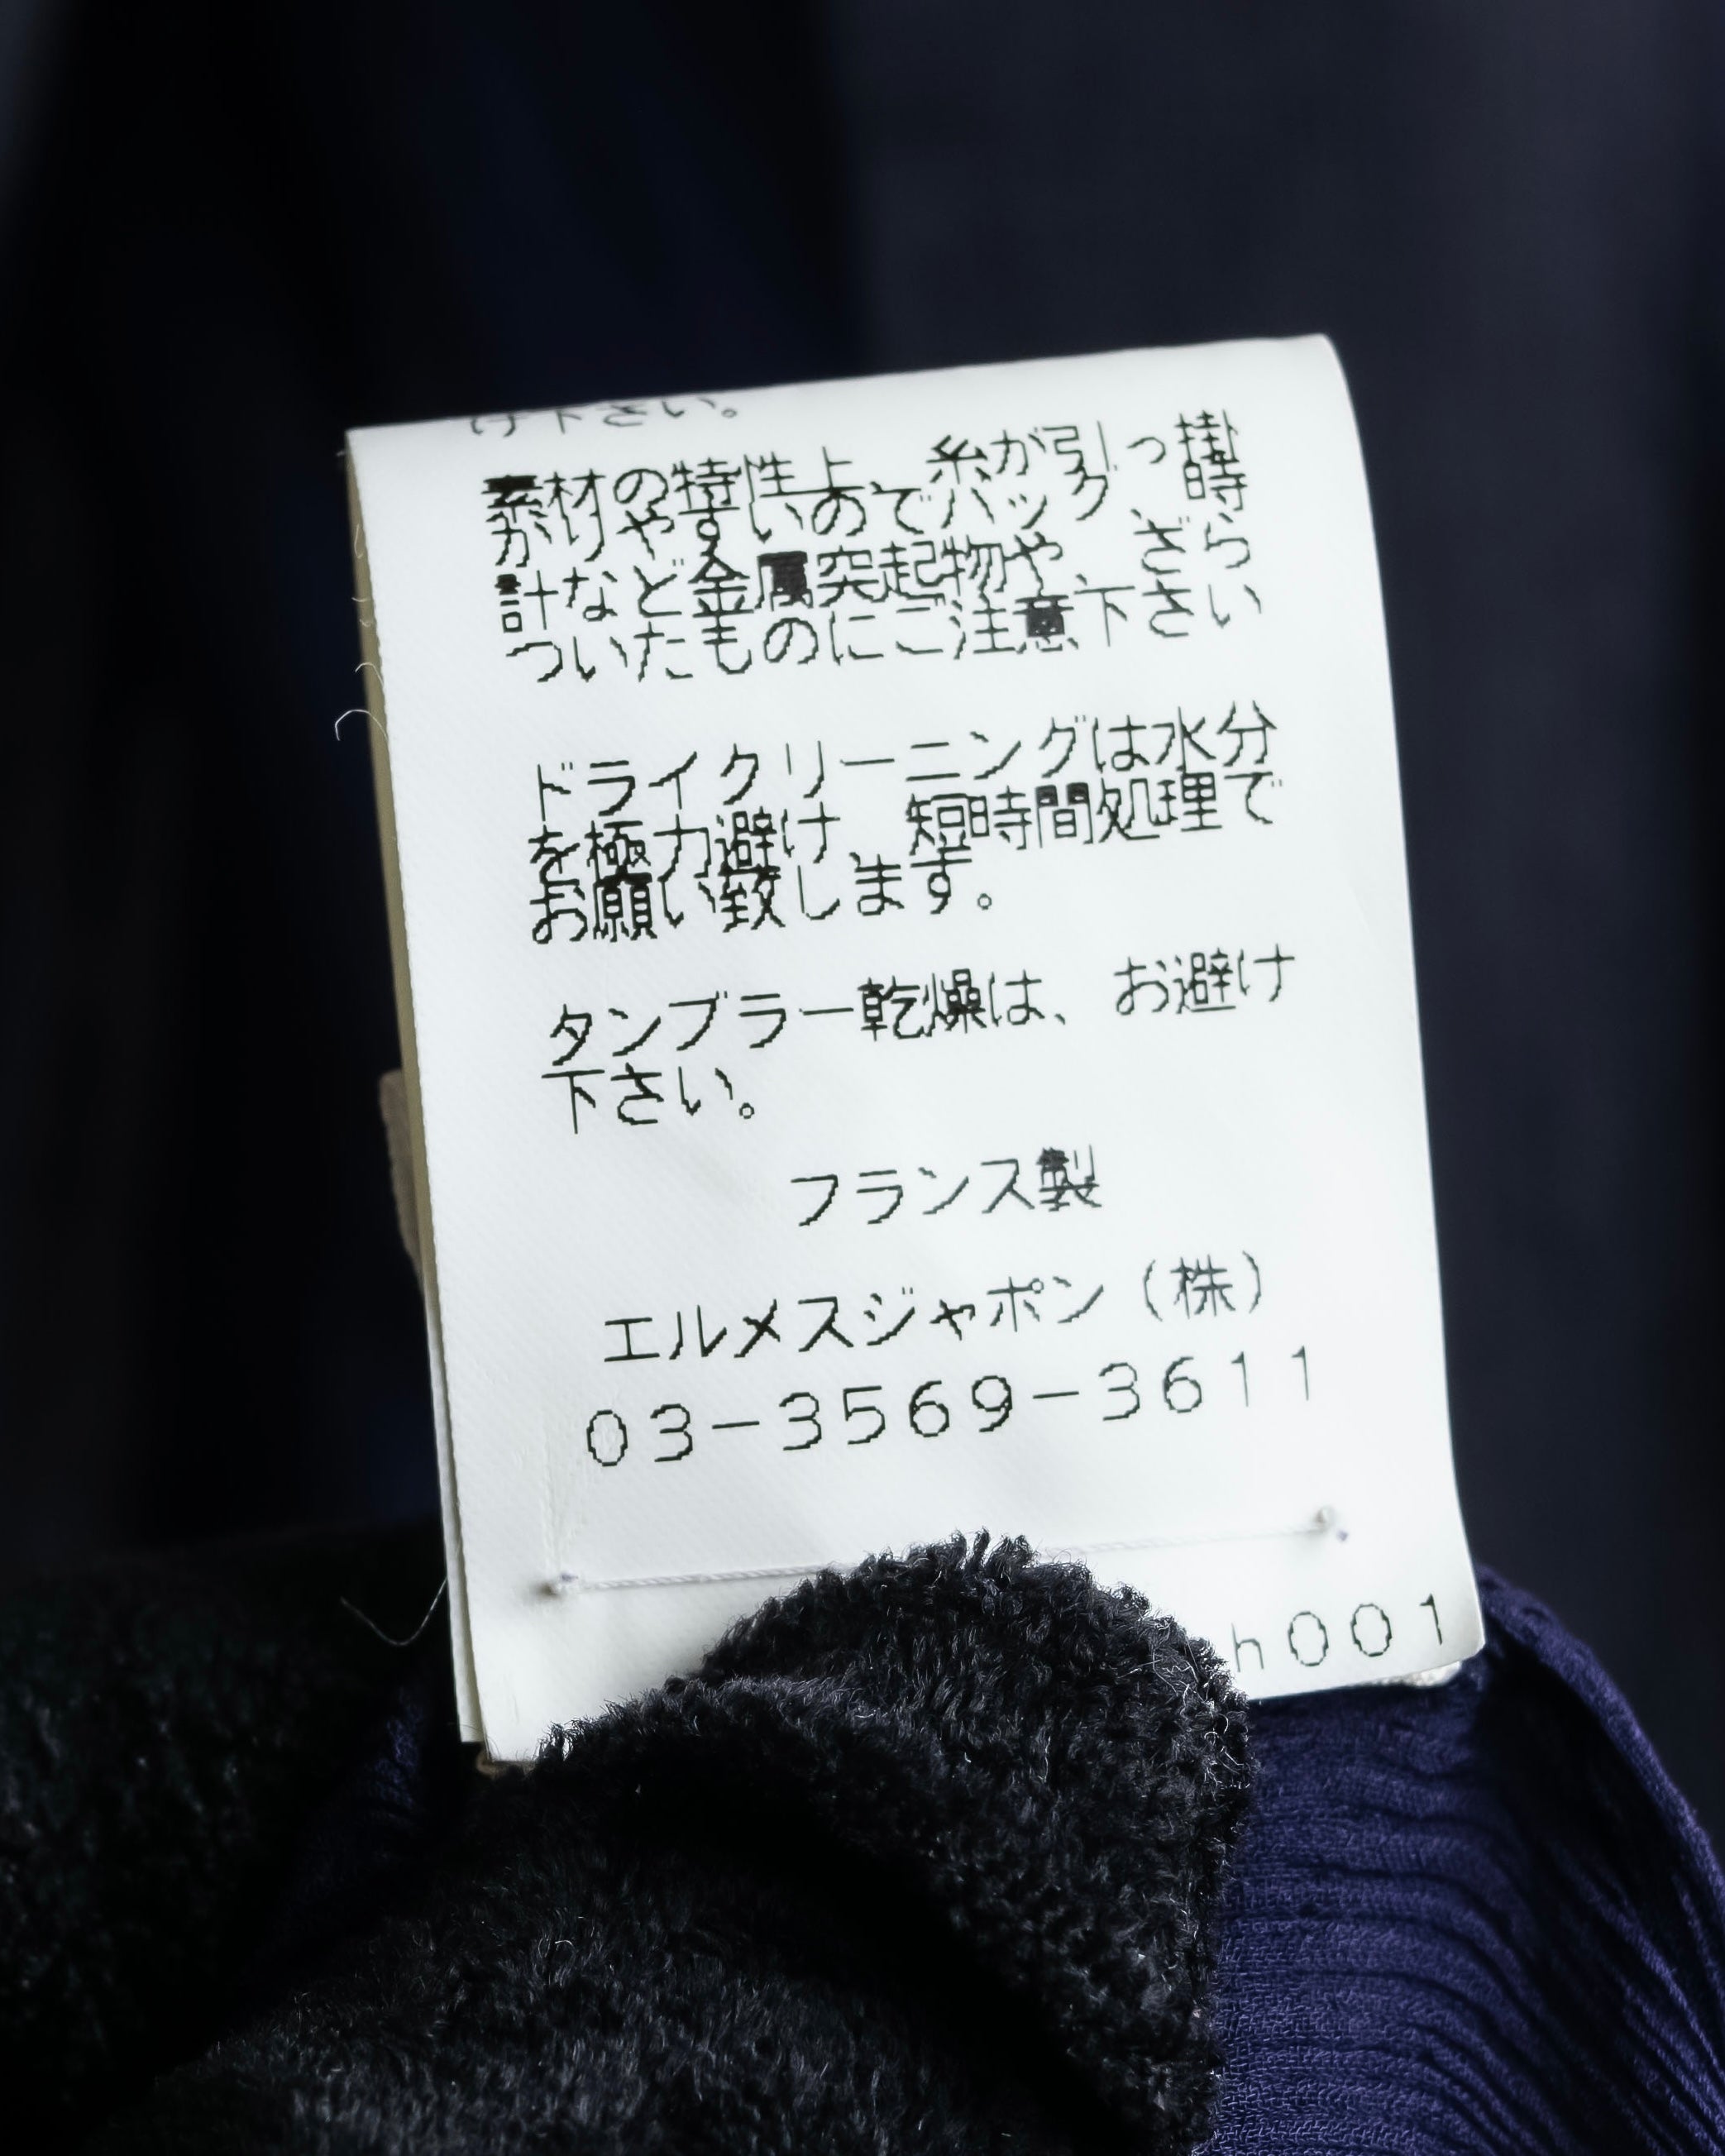 け下さい。
素材の特性上、糸が引っ掛
かりやすいのでバッグ、時
計など金属突起物や、ざら
ついたものにご注意下さい
ドライクリーニングは水分
を極力避け、短時間処理で
お願い致します。
タンブラー乾燥は、お避け
下さい。
フランス製
エルメスジャポン（株）
03-3569-3611
h001